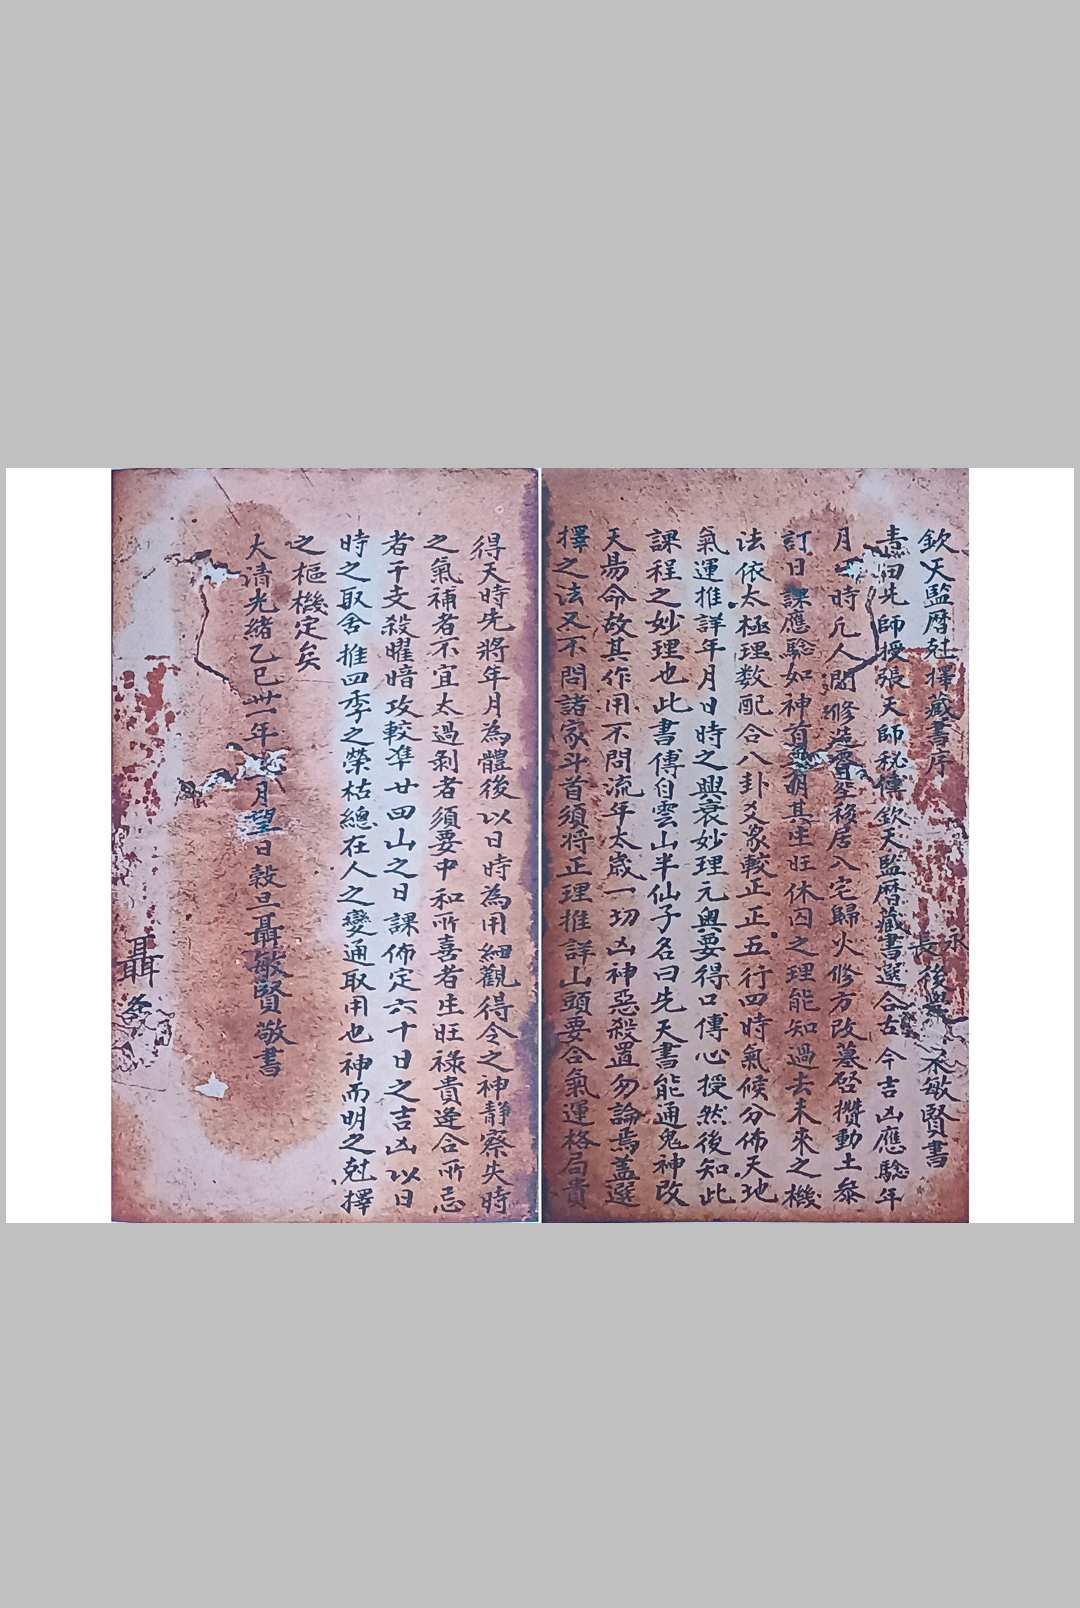 欽天監曆尅擇藏書序
永 長後學 永敏賢書
曰先師授張天師秘傳欽天監曆藏書選合古今吉凶應騐年
月 時凡人間修造 移居入宅歸火修方改墓啓攢動土叅
訂日課應騐如神 其生旺休囚之理能知過去未來之機
法依太極理数配合八卦爻象較正正五行四時氣候分佈天地
氣運推詳年月日時之興衰妙理元奥要得口傳心授然後知此
課程之妙理也此書傳自雲山半仙子名曰先天書能通鬼神改
天易命故其作用不問流年太歲一切凶神惡殺置勿論焉盖選
擇之法又不問諸家斗首須将正理推詳山頭要合氣運格局貴
得天時先將年月為體後以日時為用細觀得令之神靜察失時
之氣補者不宜太過剝者須要中和所喜者生旺祿貴逢合所忌
者干支殺曜暗攻較準廿四山之日課佈定六十日之吉凶以日
時之取舍推四季之榮枯總在人之變通取用也神而明之尅擇
之樞機定矣
大清光緒乙巳卅一年 月望日穀旦聶敏賢敬書
聶